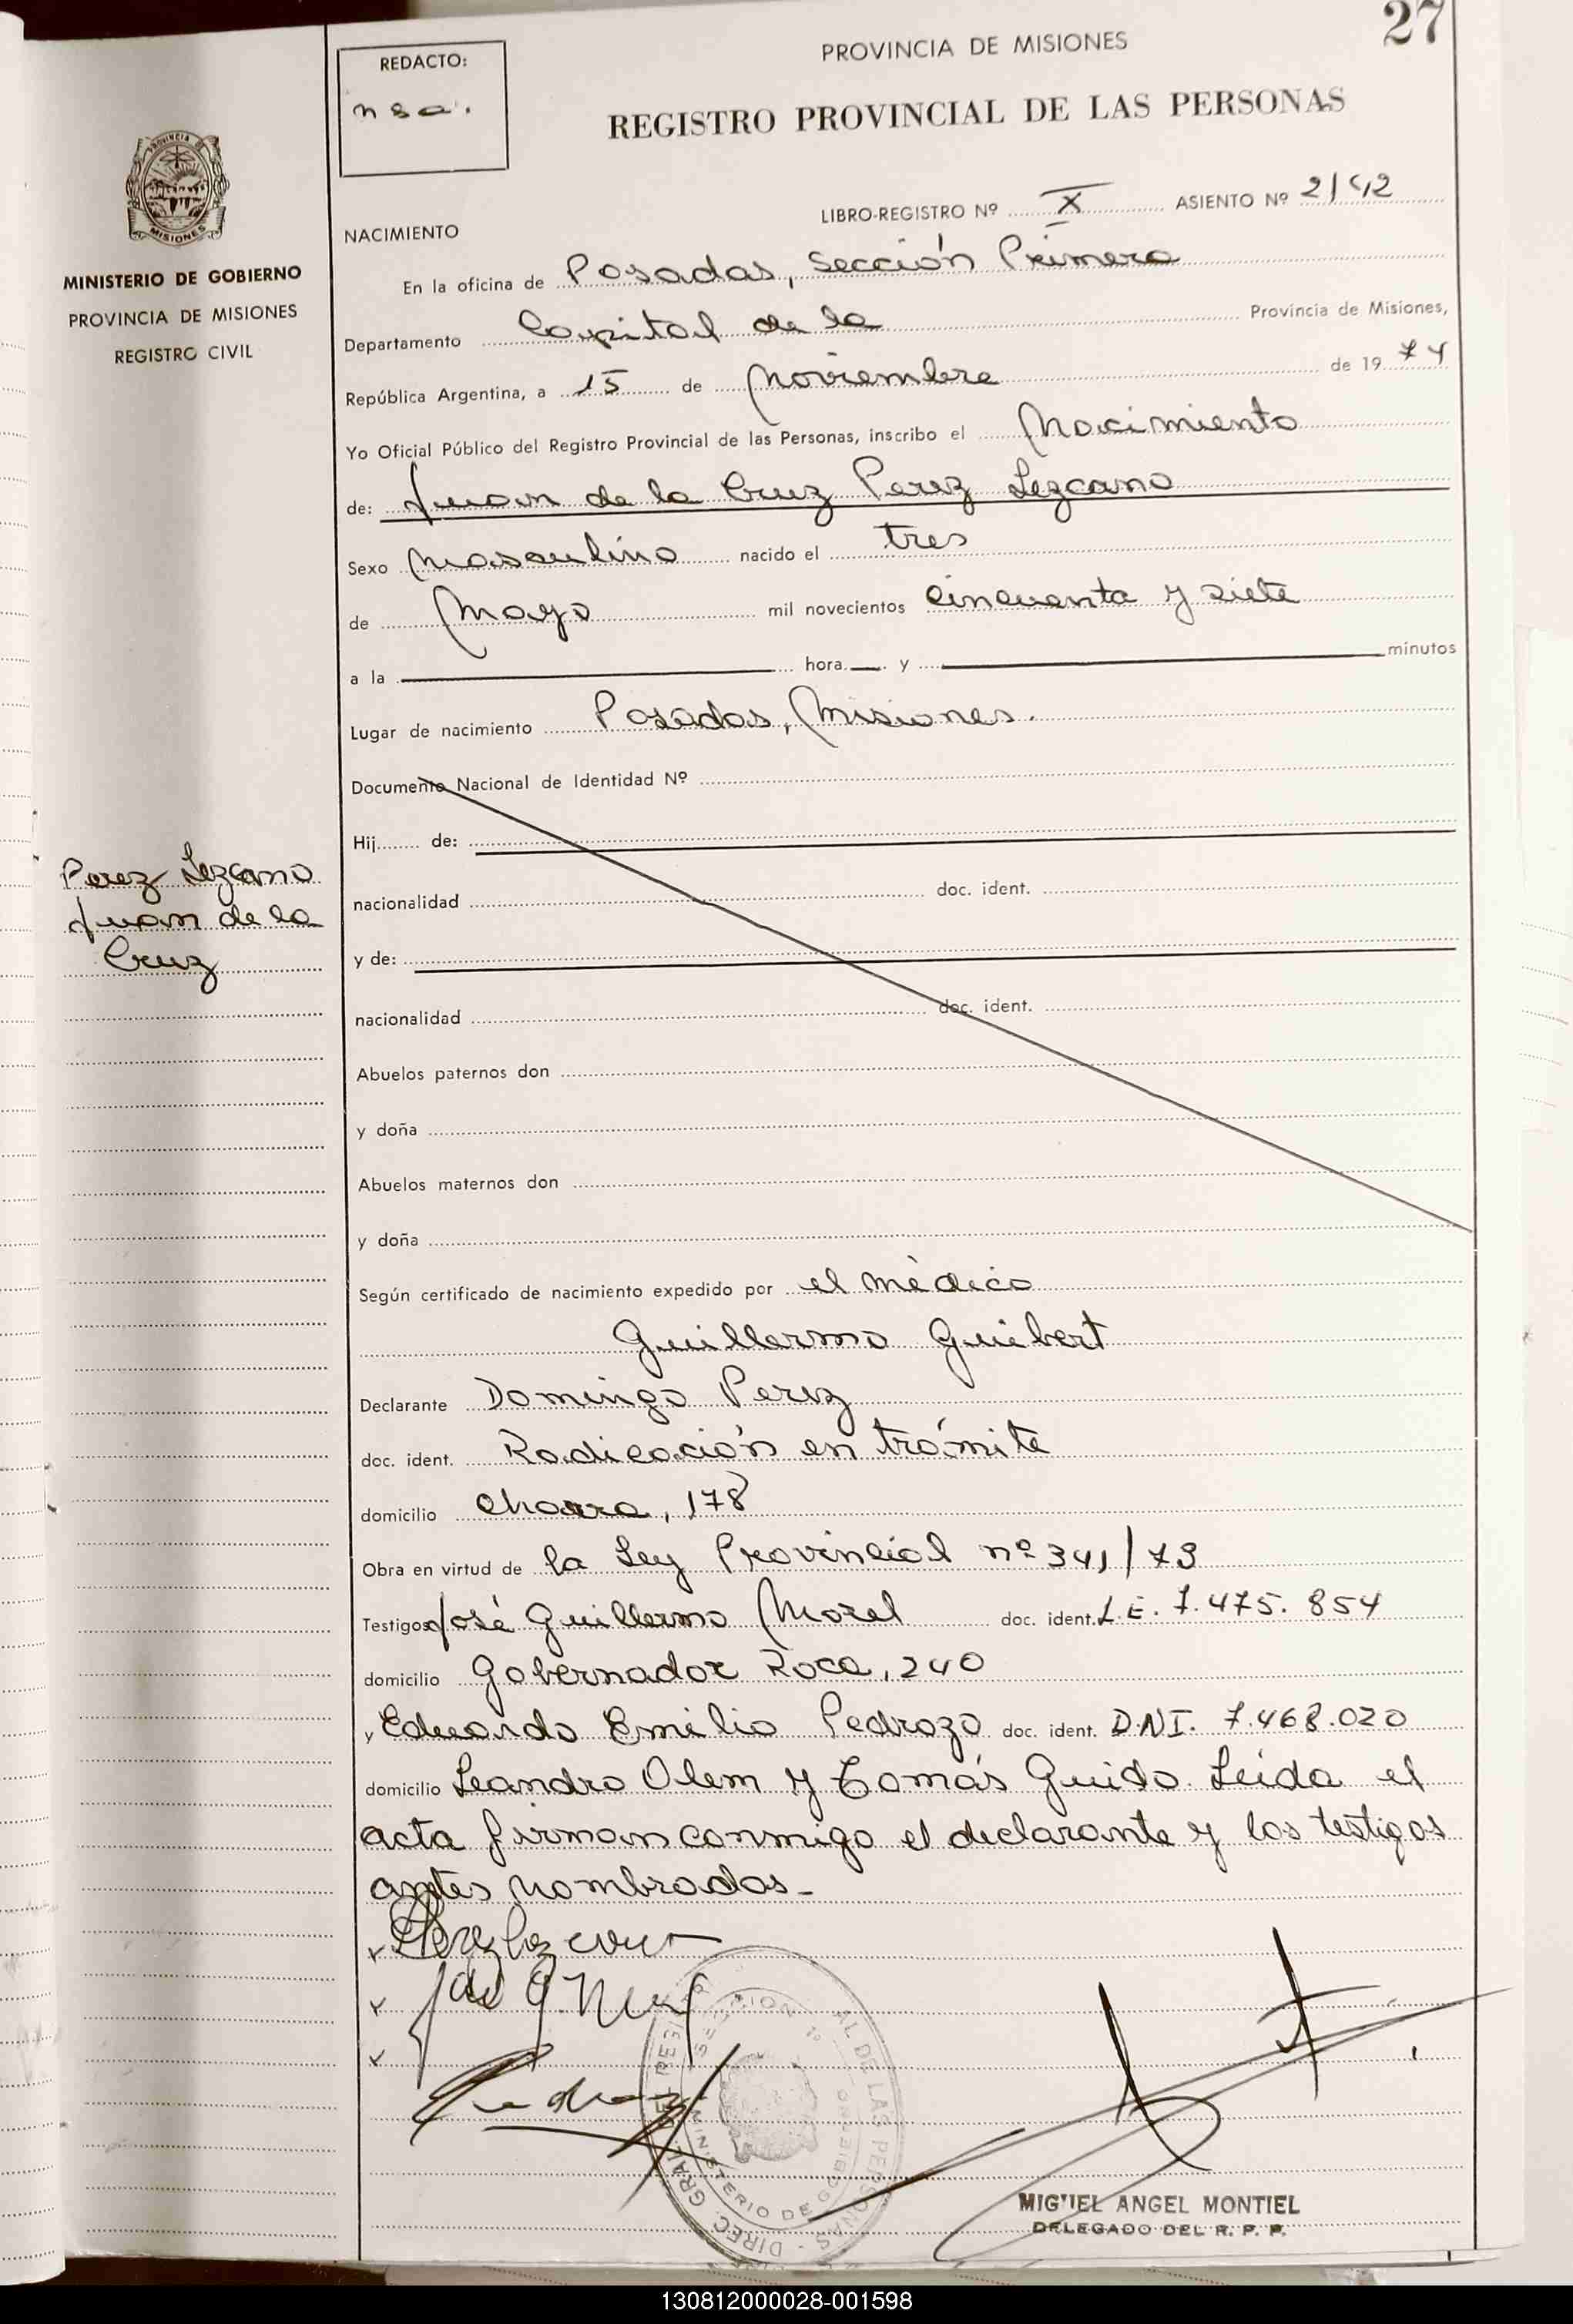 27
PROVINCIA DE MISIONES
REGISTRO PROVINCIAL DE LAS PERSONAS
REDACTO:
nsa.
MINISTERIO DE GOBIERNO
PROVINCIA DE MISIONES
REGISTRO CIVIL
Perez Lezcano
Juan de la
Cruz
LIBRO-REGISTRO Nº X ASIENTO Nº
NACIMIENTO
En la oficina de Posadas, Sección Primera
Departamento Capital de la Provincia de Misiones,
República Argentina, a 15 de Noviembre de 1974
Yo Oficial Público del Registro Provincial de las Personas, inscribo el Nacimiento
de: Juan de la Cruz Perez Lezcano
Sexo Masculino nacido el tres
de Mayo mil novecientos cincuenta y siete
a la hora y minutos
Lugar de nacimiento Posadas, Misiones.
Documento Nacional de Identidad Nº
Hij de:
nacionalidad doc. ident.
y de:
nacionalidad doc. ident.
Abuelos paternos don
y doña
Abuelos maternos don
y doña
Según certificado de nacimiento expedido por el mèdico
Guillermo Guibert
Declarante Domingo Perez
doc. ident. Radicación en trámite
domicilio chacra, 178
Obra en virtud de la Ley Provincial nº 341/73
Testigos José Guillermo Morel doc. ident. L.E. 7.475.854
domicilio Gobernador Roca, 240
y Eduardo Emilio Pedrozo doc. ident. D.N.I. 7.468.020
domicilio Leandro Alem y Tomás Guido. Leida el
acta firman conmigo el declarante y los testigos
antes nombrados-
MIGUEL ANGEL MONTIEL
DELEGADO DEL R. P. P.
130812000028-001598